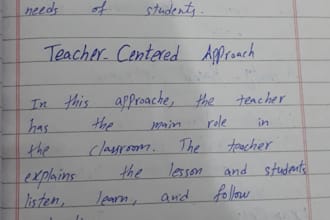 needs of students.
Teacher-Centered Approach
In this approache, the teacher
has the main role in
the classroom. The teacher
explains the lesson and students
listen, learn, and follow